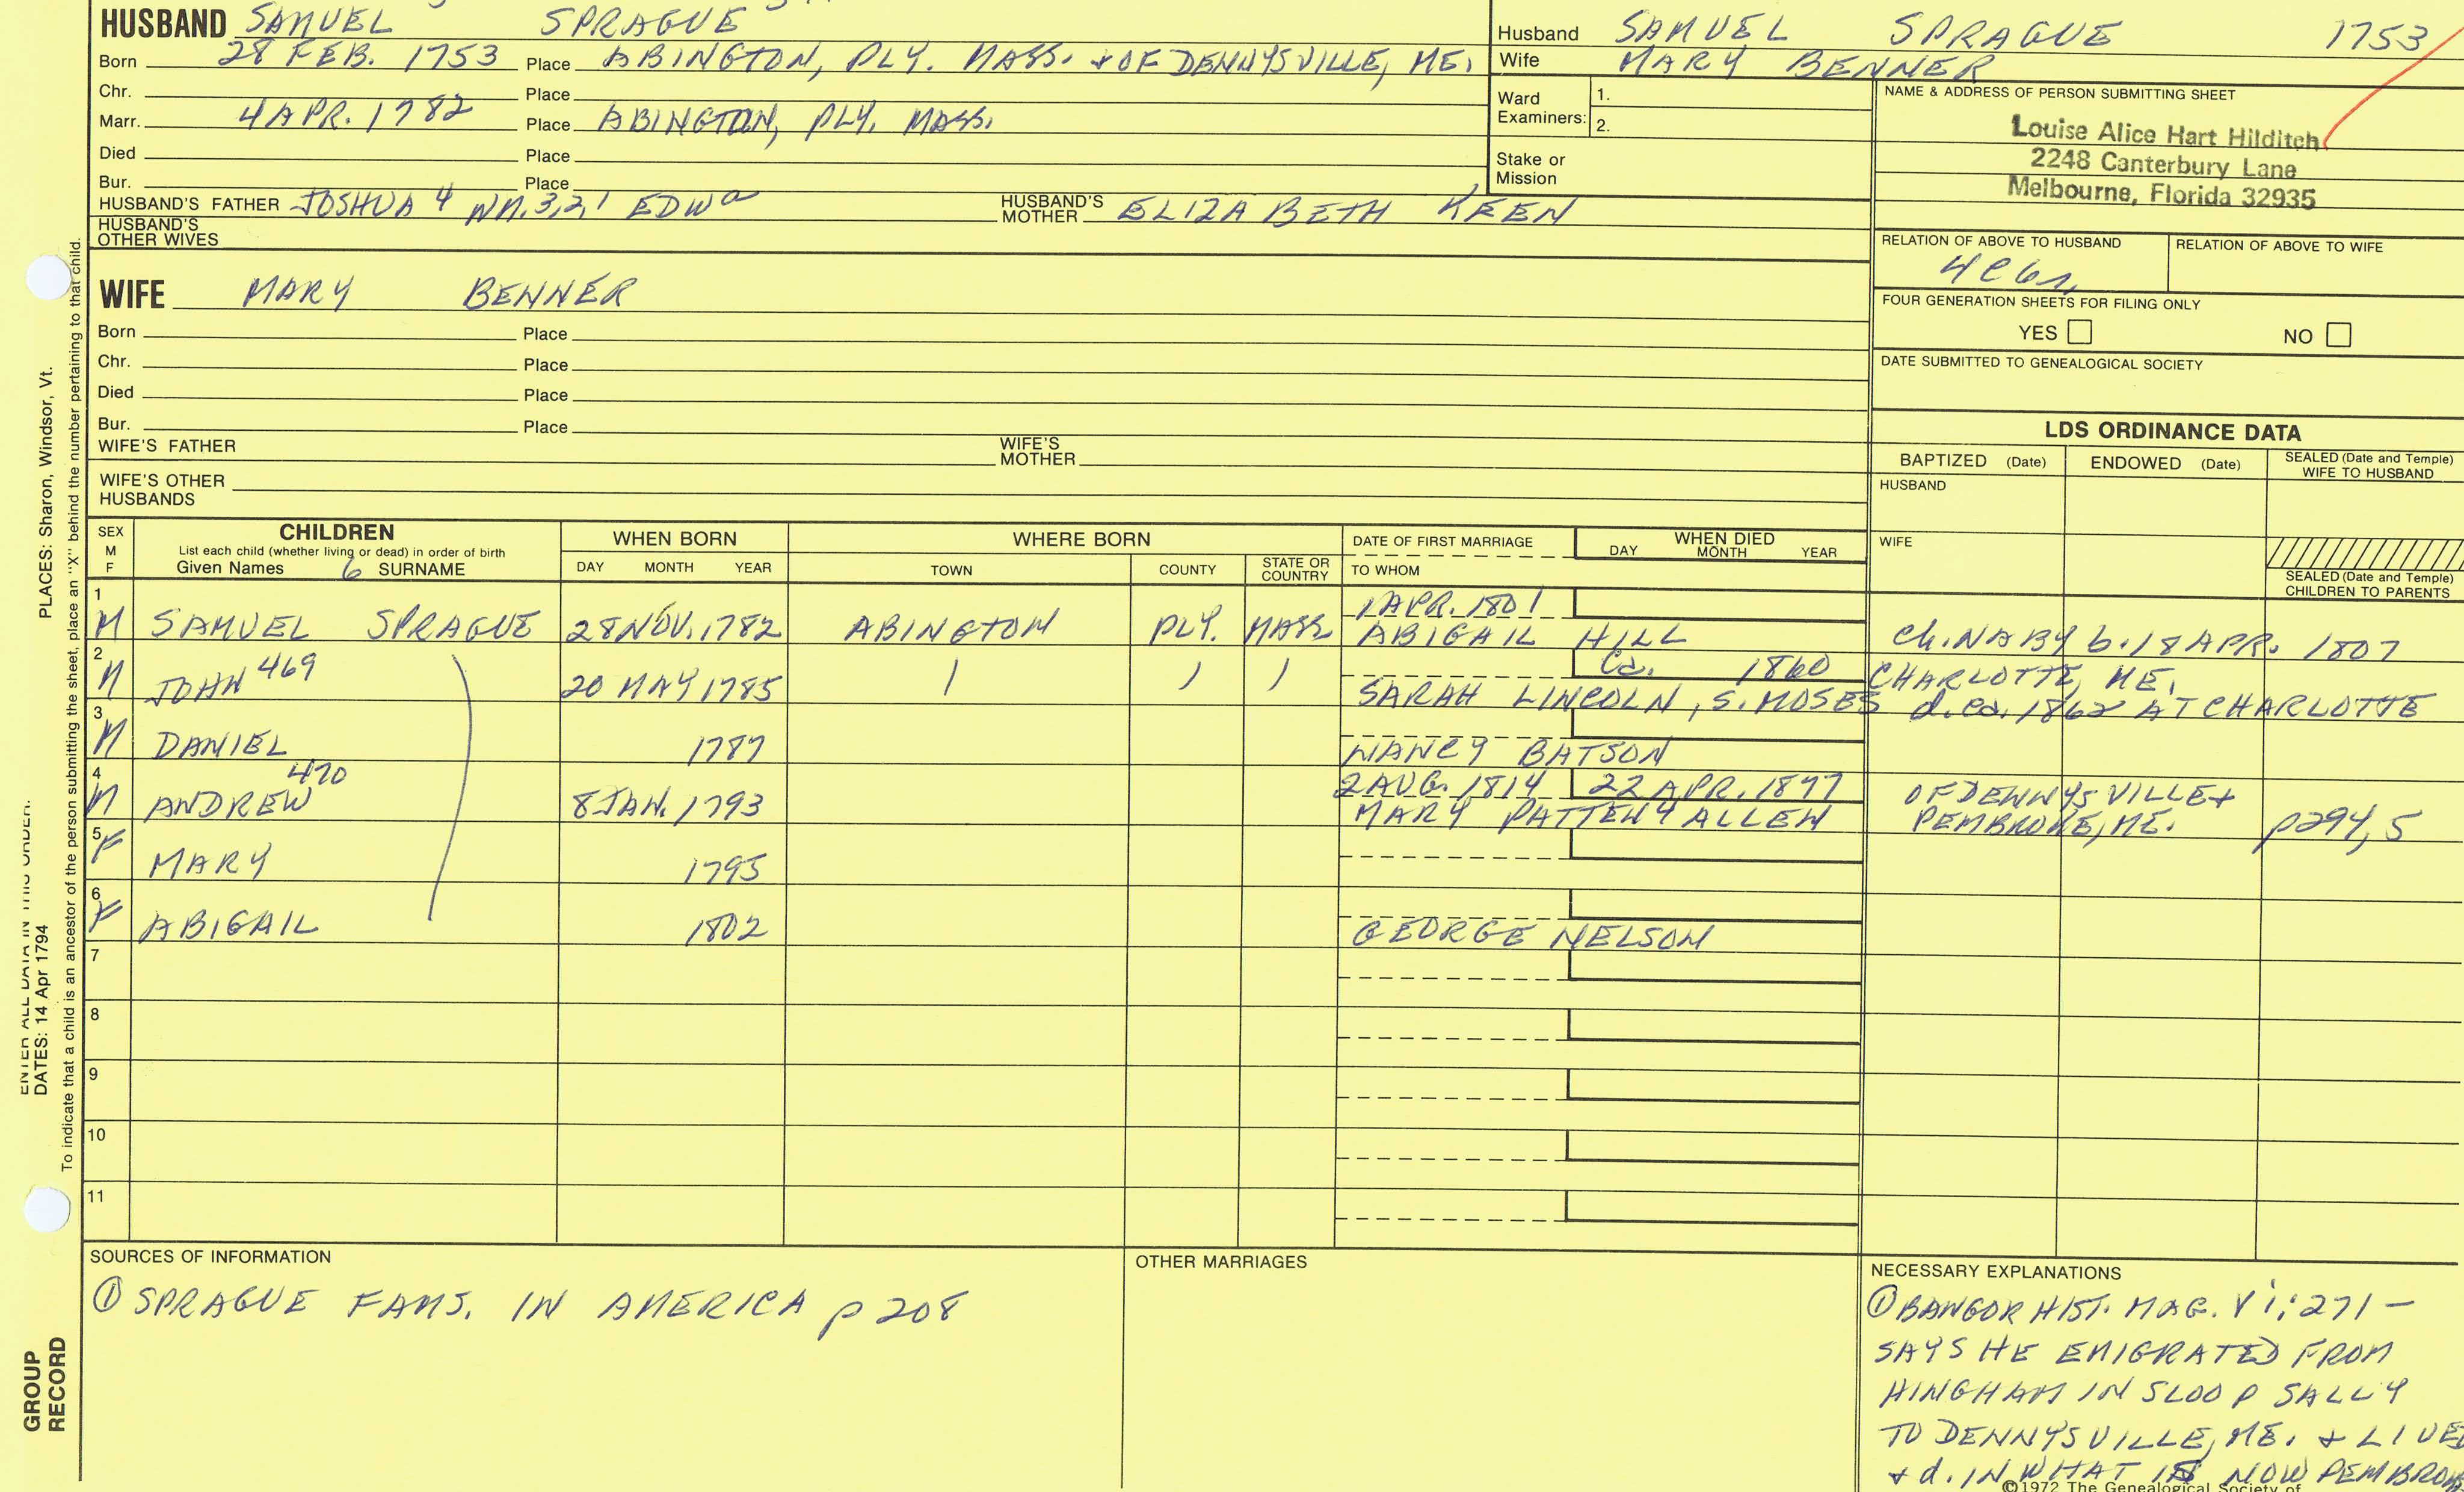 HUSBAND SAMUEL SPRAGUE
Born 28 FEB. 1753 Place ABINGTON, PLY. MASS. + OF DENNYSVILLE, ME.
Chr. Place
Marr. 4 APR. 1782 Place ABINGTON, PLY. MASS.
Died Place
Bur. Place
HUSBAND'S FATHER JOSHUA 4 WM. 3,2,1 EDWD HUSBAND'S MOTHER ELIZABETH KEEN
HUSBAND'S OTHER WIVES
Husband SAMUEL SPRAGUE 1753
Wife MARY BENNER
Ward Examiners: 1.
2.
Stake or Mission
NAME & ADDRESS OF PERSON SUBMITTING SHEET
Louise Alice Hart Hilditch
2248 Canterbury Lane
Melbourne, Florida 32935
RELATION OF ABOVE TO HUSBAND RELATION OF ABOVE TO WIFE
FOUR GENERATION SHEETS FOR FILING ONLY
YES NO
DATE SUBMITTED TO GENEALOGICAL SOCIETY
WIFE MARY BENNER
Born Place
Chr. Place
Died Place
Bur. Place
WIFE'S FATHER WIFE'S MOTHER
WIFE'S OTHER HUSBANDS
LDS ORDINANCE DATA
BAPTIZED (Date) ENDOWED (Date) SEALED (Date and Temple) WIFE TO HUSBAND
HUSBAND
WIFE
SEALED (Date and Temple) CHILDREN TO PARENTS
SEX M F CHILDREN WHEN BORN WHERE BORN DATE OF FIRST MARRIAGE WHEN DIED
List each child (whether living or dead) in order of birth
Given Names 6 SURNAME DAY MONTH YEAR TOWN COUNTY STATE OR COUNTRY TO WHOM DAY MONTH YEAR
1 1 APR. 1801
M SAMUEL SPRAGUE 28 NOV. 1782 ABINGTON PLY. MASS ABIGAIL HILL Ch. NABY b. 18 APR. 1807
2 Ca. 1860 CHARLOTTE, ME.
M JOHN 469 20 MAY 1785 SARAH LINCOLN, S. MOSES d. ca. 1862 AT CHARLOTTE
3
M DANIEL 1787 NANCY BATSON
4 470 2 AUG. 1814 22 APR. 1877 OF DENNYSVILLE +
M ANDREW 8 JAN. 1793 MARY PATTEN Y ALLEN PEMBROKE, ME. p 294, 5
5
F MARY 1795
6
F ABIGAIL 1802 GEORGE NELSON
7
8
9
10
11
SOURCES OF INFORMATION
① SPRAGUE FAMS. IN AMERICA p 208
OTHER MARRIAGES
NECESSARY EXPLANATIONS
① BANGOR HIST. MAG. Vi; 271 —
SAYS HE EMIGRATED FROM
HINGHAM IN SLOOP SALLY
TO DENNYSVILLE, ME. + LIVED
+ d. IN WHAT IS NOW PEMBROKE
©1972 The Genealogical Society of
PLACES: Sharon, Windsor, Vt.
To indicate that a child is an ancestor of the person submitting the sheet, place an "X" behind the number pertaining to that child.
ENTER ALL DATA IN THIS ORDER:
DATES: 14 Apr 1794
GROUP RECORD